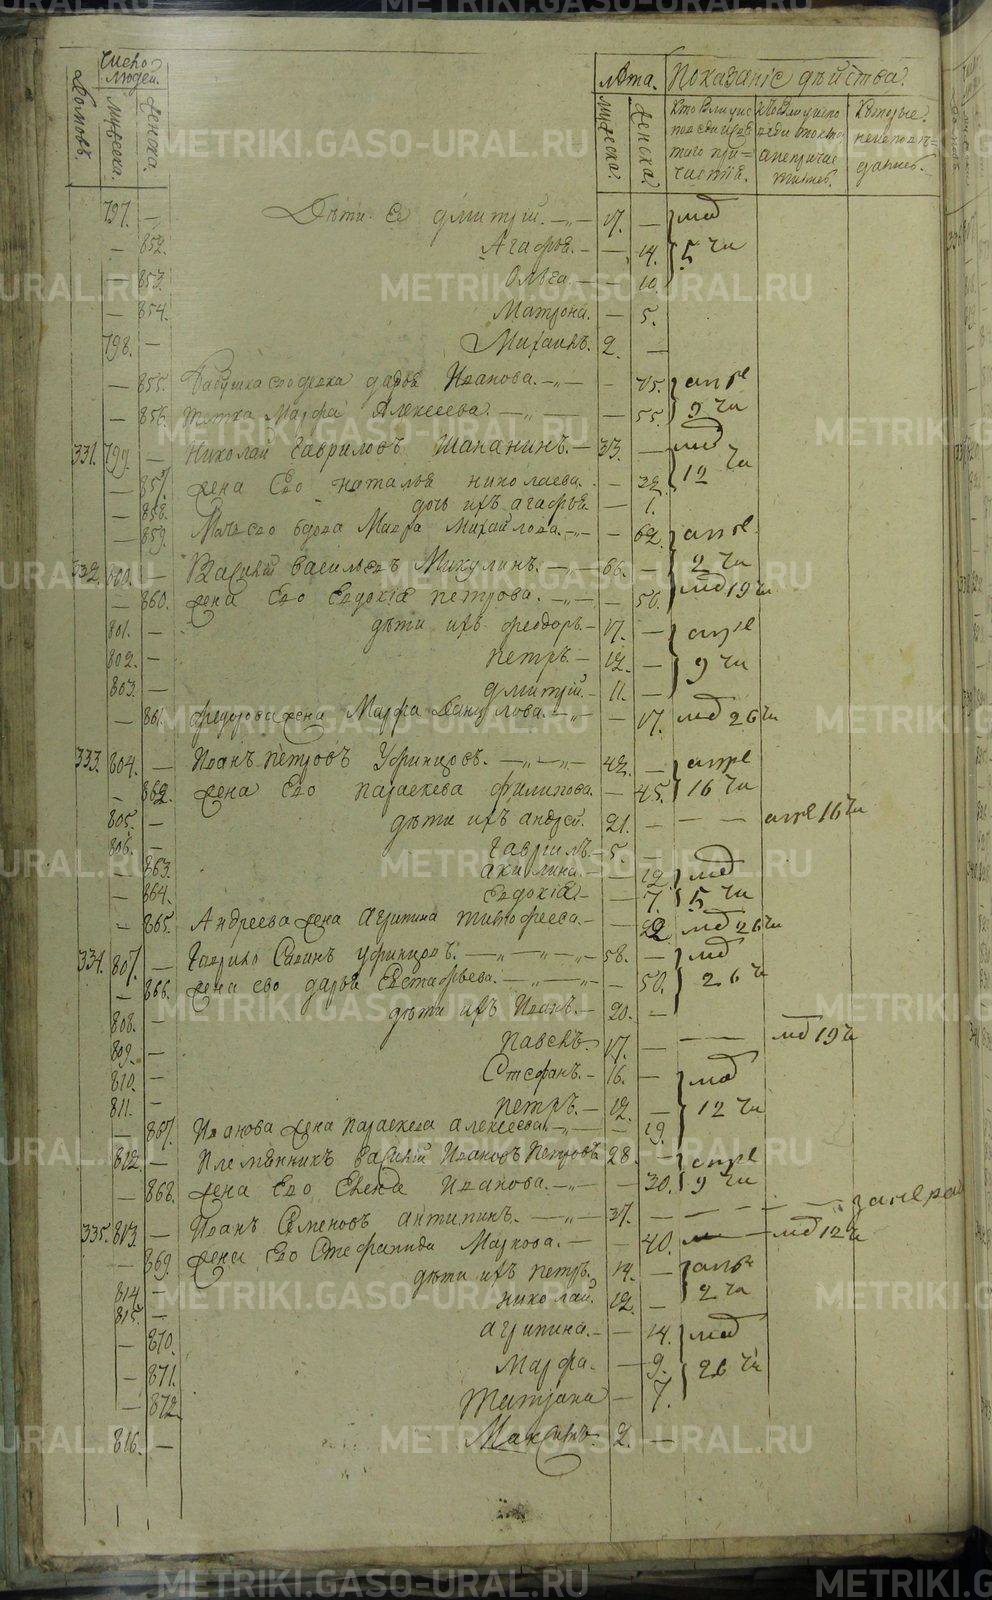 Число людей.
лѣта. Показаніе дѣйства.
Домовъ. мужеска. женска. мужеска. женска.
797. — Дѣти Ея Дмитрій. — 17. — мар
— 852. Агафья. — 14. 5 чи
— 853. Ольга. — 10.
— 854. Матрона. — 5.
798. — Михаилъ. 2. —
— 855. Дарья Иванова. — 75. апре
— 856. тетка Марфа Алексеева. — 55. 9 чи
331. 799. — Николай Гавриловъ Шананинъ. — 33. — мар
— 857. жена Его Наталья Николаева. — 32. 12 чи
— 858. дочь ихъ Агафья — 1.
— 859. вдова Мавра Михайлова. — 62. апре
332. 800. — Василій Васильевъ Микулинъ. — 66. — 2 чи
— 860. жена Его Евдокія Петрова. — 56. мар 19 чи
801. — дѣти ихъ Феодоръ. — 17. — апре
802. — Петръ. — 12. — 9 чи
803. — Дмитрій. — 11. —
— 861. Федорова жена Марфа Данилова. — 17. мар 26 чи
333. 804. — Иванъ Петровъ Уфинцовъ. — 42. — апре
— 862. жена Его Параскева Филипова. — 45. 16 чи
805. — дѣти ихъ Андрей. 21. — — — апре 16 чи
806. — Гавріилъ. — 5. —
— 863. Акилина. — 12. мар
— 864. Евдокія — 7. 5 чи
— 865. Андреева жена Агрипина Тимофеева. — 22 мар 26 чи
334. 807. — Гаврило Савинъ Уфинцовъ. — 58. — мар
— 866. жена Его Дарья Евстафьева. — 50. 26 ч
808. — дѣти ихъ Иванъ. — 20. —
809. — Павелъ. 17. — — мар 19 ч
810. — Стефанъ. — 16. — мар
811. — Петръ. — 12. — 12 чи
— 867. Иванова жена Параскева Алексеева. — 19.
812. — Племянникъ Василій Ивановъ Петровъ 28. — апре
— 868. жена Его Елена Иванова. — 30. 9 чи
335. 813. — Иванъ Семеновъ Антипинъ. — 37. — — —
— 869. жена Его Стефанида Маркова. — 40. — мар 12 чи
814 — дѣти ихъ Петръ. 14. — апре
815. — Николай. 12. — 2 чи
— 870. Агрипина. — 14. мар
— 871. Марфа. — 9. 26 чи
— 872. Татіана — 7.
816. — Максимъ. 2. —
METRIKI.GASO-URAL.RU